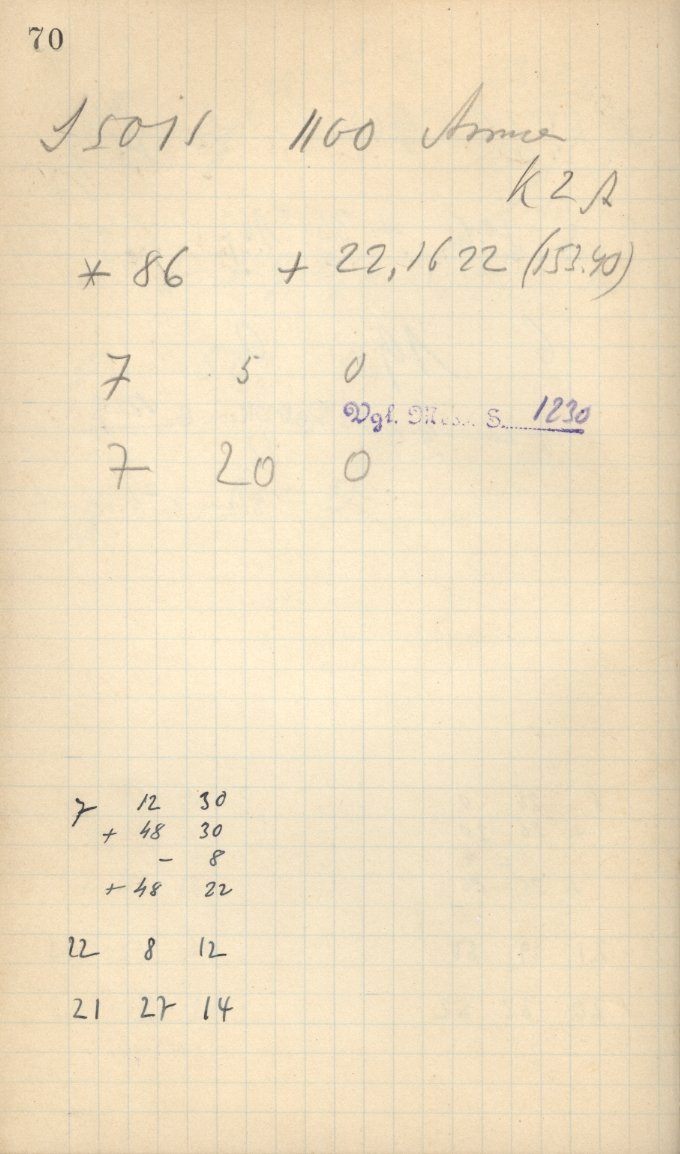 70
J 5011 1100 Annie
K 2 A
* 86 + 22,1622 (153.40)
7 5 0
Vgl. Mess. S. 1230
7 20 0
7 12 30
+ 48 30
- 8
+ 48 22
22 8 12
21 27 14